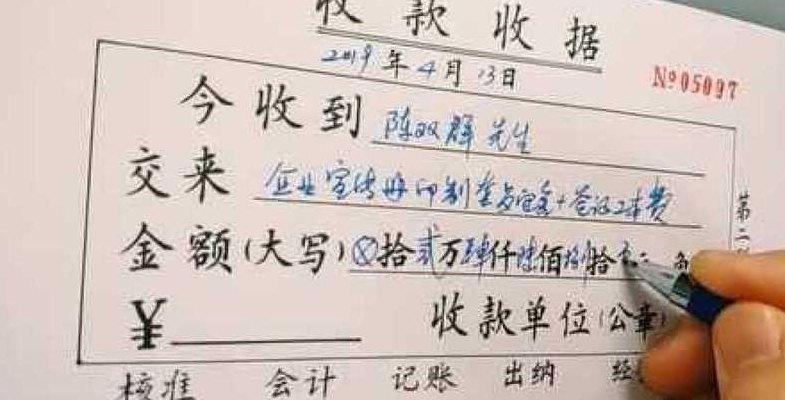 收款收据
2019年4月13日
No 05097
今收到 陈双群 先生
交来 企业宣传册印刷 费
金额(大写)⊗拾贰万肆仟陆佰捌拾
¥ 收款单位(公章)
第二
核准 会计 记账 出纳 经